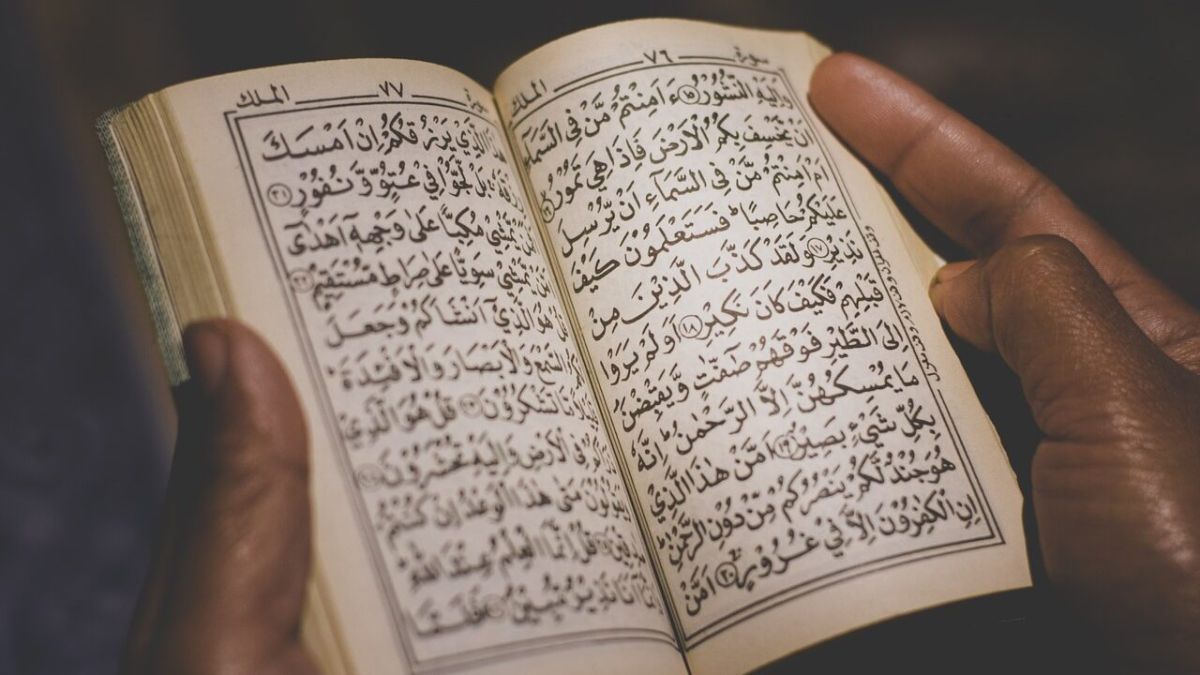 سورة ٧٦ الملك
وَاِلَيْهِ النُّشُوْرُ ١٥ ءَاَمِنْتُمْ مَّنْ فِى السَّمَآءِ
اَنْ يَّخْسِفَ بِكُمُ الْاَرْضَ فَاِذَا هِيَ تَمُوْرُ ١٦
اَمْ اَمِنْتُمْ مَّنْ فِى السَّمَآءِ اَنْ يُّرْسِلَ
عَلَيْكُمْ حَاصِبًا ؕ فَسَتَعْلَمُوْنَ كَيْفَ
نَذِيْرِ ١٧ وَلَقَدْ كَذَّبَ الَّذِيْنَ مِنْ
قَبْلِهِمْ فَكَيْفَ كَانَ نَكِيْرِ ١٨ اَوَلَمْ يَرَوْا
اِلَى الطَّيْرِ فَوْقَهُمْ صٰٓفّٰتٍ وَّيَقْبِضْنَ
مَا يُمْسِكُهُنَّ اِلَّا الرَّحْمٰنُ ؕ اِنَّهٗ
بِكُلِّ شَيْءٍ بَصِيْرٌ ١٩ اَمَّنْ هٰذَا الَّذِيْ
هُوَ جُنْدٌ لَّكُمْ يَنْصُرُكُمْ مِّنْ دُوْنِ الرَّحْمٰنِ ؕ
اِنِ الْكٰفِرُوْنَ اِلَّا فِيْ غُرُوْرٍ ٢٠ اَمَّنْ
سورة ٧٧ الملك
هٰذَا الَّذِيْ يَرْزُقُكُمْ اِنْ اَمْسَكَ
رِزْقَهٗ ۚ بَلْ لَّجُّوْا فِيْ عُتُوٍّ وَّنُفُوْرٍ ٢١
يَّمْشِيْ مُكِبًّا عَلٰى وَجْهِهٖٓ اَهْدٰٓى
يَّمْشِيْ سَوِيًّا عَلٰى صِرَاطٍ مُّسْتَقِيْمٍ ٢٢
قُلْ هُوَ الَّذِيْٓ اَنْشَاَكُمْ وَجَعَلَ
السَّمْعَ وَالْاَبْصَارَ وَالْاَفْـِٕدَةَ ؕ
مَّا تَشْكُرُوْنَ ٢٣ قُلْ هُوَ الَّذِيْ
فِى الْاَرْضِ وَاِلَيْهِ تُحْشَرُوْنَ ٢٤
وَيَقُوْلُوْنَ مَتٰى هٰذَا الْوَعْدُ اِنْ كُنْتُمْ
صٰدِقِيْنَ ٢٥ قُلْ اِنَّمَا الْعِلْمُ عِنْدَ اللّٰهِ
اَنَا نَذِيْرٌ مُّبِيْنٌ ٢٦ فَلَمَّا